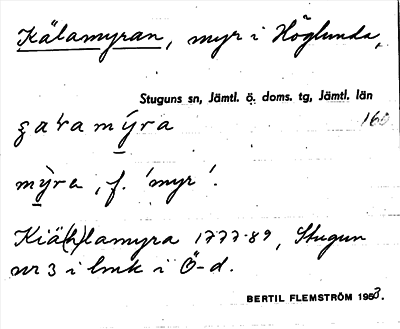 Kälamyran, myr i Höglunda,
Stuguns sn, Jämtl. ö. doms. tg, Jämtl. län
myra, f. 'myr'.
Kiä(h)lamyra 1777-89, Stugun
nr 3 i lmk i Ö-d.
BERTIL FLEMSTRÖM 1953.